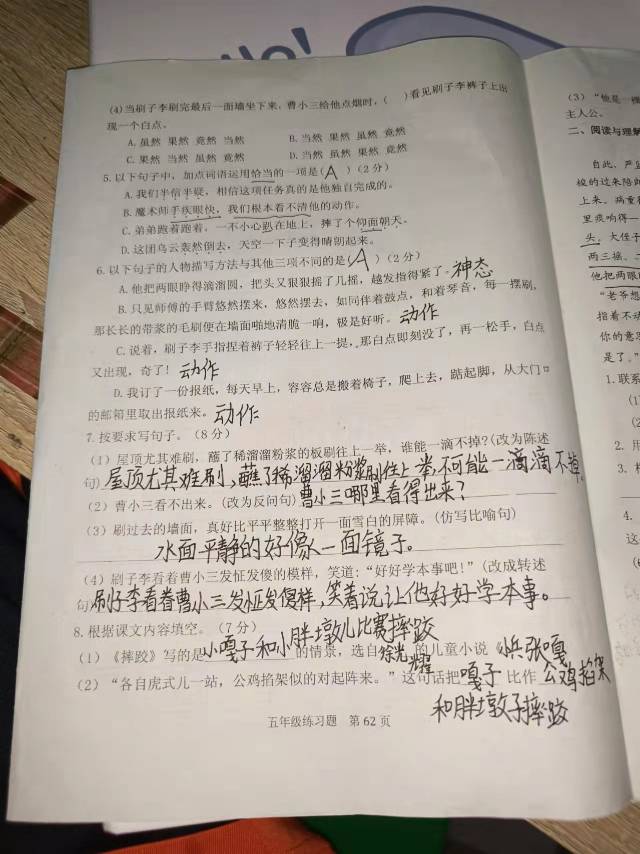 (4)当刷子李刷完最后一面墙坐下来，曹小三给他点烟时，（ ）看见刷子李裤子上出
现一个白点。
A. 虽然 果然 竟然 当然 B. 当然 果然 虽然 竟然
C. 果然 当然 虽然 竟然 D. 当然 虽然 果然 竟然
5. 以下句子中，加点词语运用恰当的一项是(A)（2分）
A. 我们半信半疑，相信这项任务真的是他独自完成的。
B. 魔术师手疾眼快，我们根本看不清他的动作。
C. 弟弟跑着跑着，一不小心趴在地上，摔了个仰面朝天。
D. 这团乌云轰然倒去，天空一下子变得晴朗起来。
6. 以下句子的人物描写方法与其他三项不同的是(A)（2分）
A. 他把两眼睁得滴溜圆，把头又狠狠摇了几摇，越发指得紧了。神态
B. 只见师傅的手臂悠然摆来，悠然摆去，如同伴着鼓点，和着琴音，每一摆刷，
那长长的带浆的毛刷便在墙面啪地清脆一响，极是好听。动作
C. 说着，刷子李手指捏着裤子轻轻往上一提，那白点即刻没了，再一松手，白点
又出现，奇了！动作
D. 我订了一份报纸，每天早上，容容总是搬着椅子，爬上去，踮起脚，从大门
的邮箱里取出报纸来。动作
7. 按要求写句子。（8分）
（1）屋顶尤其难刷，蘸了稀溜溜粉浆的板刷往上一举，谁能一滴不掉?(改为陈述
句)屋顶尤其难刷,蘸了稀溜溜粉浆刷往上举,不可能一滴滴不掉
（2）曹小三看不出来。（改为反问句）曹小三哪里看得出来?
（3）刷过去的墙面，真好比平平整整打开一面雪白的屏障。（仿写比喻句）
水面平静的好像一面镜子。
（4）刷子李看着曹小三发怔发傻的模样，笑道：“好好学本事吧！”（改成转述
句)刷子李看着曹小三发怔发傻样,笑着说让他好好学本事。
8. 根据课文内容填空。（7分）
（1）《摔跤》写的是小嘎子和小胖墩儿比赛摔跤的情景，选自徐光耀的儿童小说《小兵张嘎
（2）“各自虎式儿一站，公鸡掐架似的对起阵来。”这句话把嘎子比作公鸡掐架
和胖墩子摔跤
五年级练习题 第62页
（3）“他是一
主人公。
二、阅读与理解
自此，严
上来。
里疾响得一
头，大侄子
两三摇。
他把两眼
“老爷想
指着不动
你的意思
是了。”
1. 联系
(1)
(2
2. 用
3.
4.
这
(6